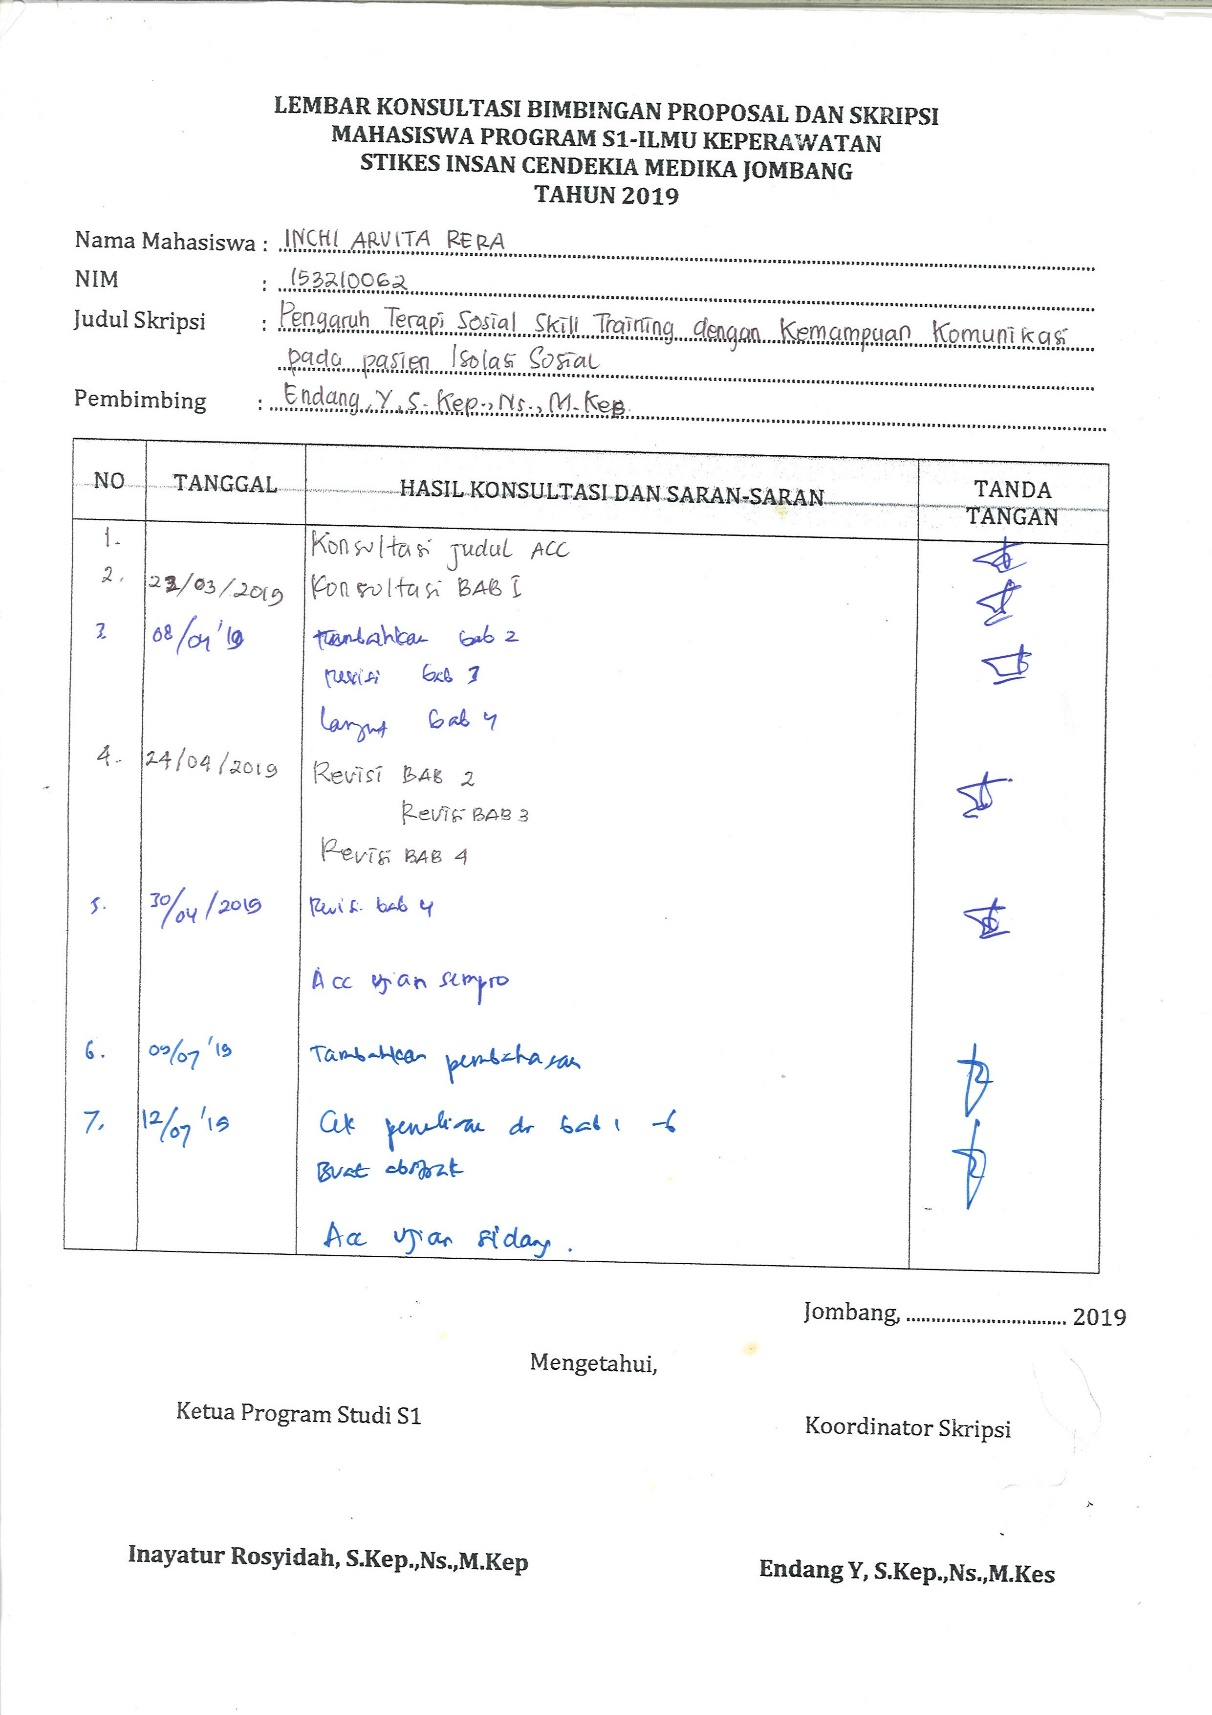 LEMBAR KONSULTASI BIMBINGAN PROPOSAL DAN SKRIPSI
MAHASISWA PROGRAM S1-ILMU KEPERAWATAN
STIKES INSAN CENDEKIA MEDIKA JOMBANG
TAHUN 2019
Nama Mahasiswa : INCHI ARVITA RERA
NIM : 153210062
Judul Skripsi : Pengaruh Terapi Sosial Skill Training dengan Kemampuan Komunikasi
pada pasien Isolasi Sosial
Pembimbing : Endang, Y, S. Kep., Ns., M. Kep
NO TANGGAL HASIL KONSULTASI DAN SARAN-SARAN TANDA TANGAN
1. Konsultasi judul ACC
2. /03/2019 Konsultasi BAB I
3 08/04 '19 tambahkan bab 2
revisi bab 3
lanjut bab 4
4. 24/04/2019 Revisi BAB 2
Revisi BAB 3
Revisi BAB 4
5. 30/04/2019 Revisi bab 4
Acc ujian sempro
6. 09/07 '19 Tambahkan pembahasan
7. 12/07 '19 Cek penulisan dr bab 1 - 6
Buat abstrak
Acc ujian sidang.
Jombang, .................................. 2019
Mengetahui,
Ketua Program Studi S1
Koordinator Skripsi
Inayatur Rosyidah, S.Kep.,Ns.,M.Kep
Endang Y, S.Kep.,Ns.,M.Kes